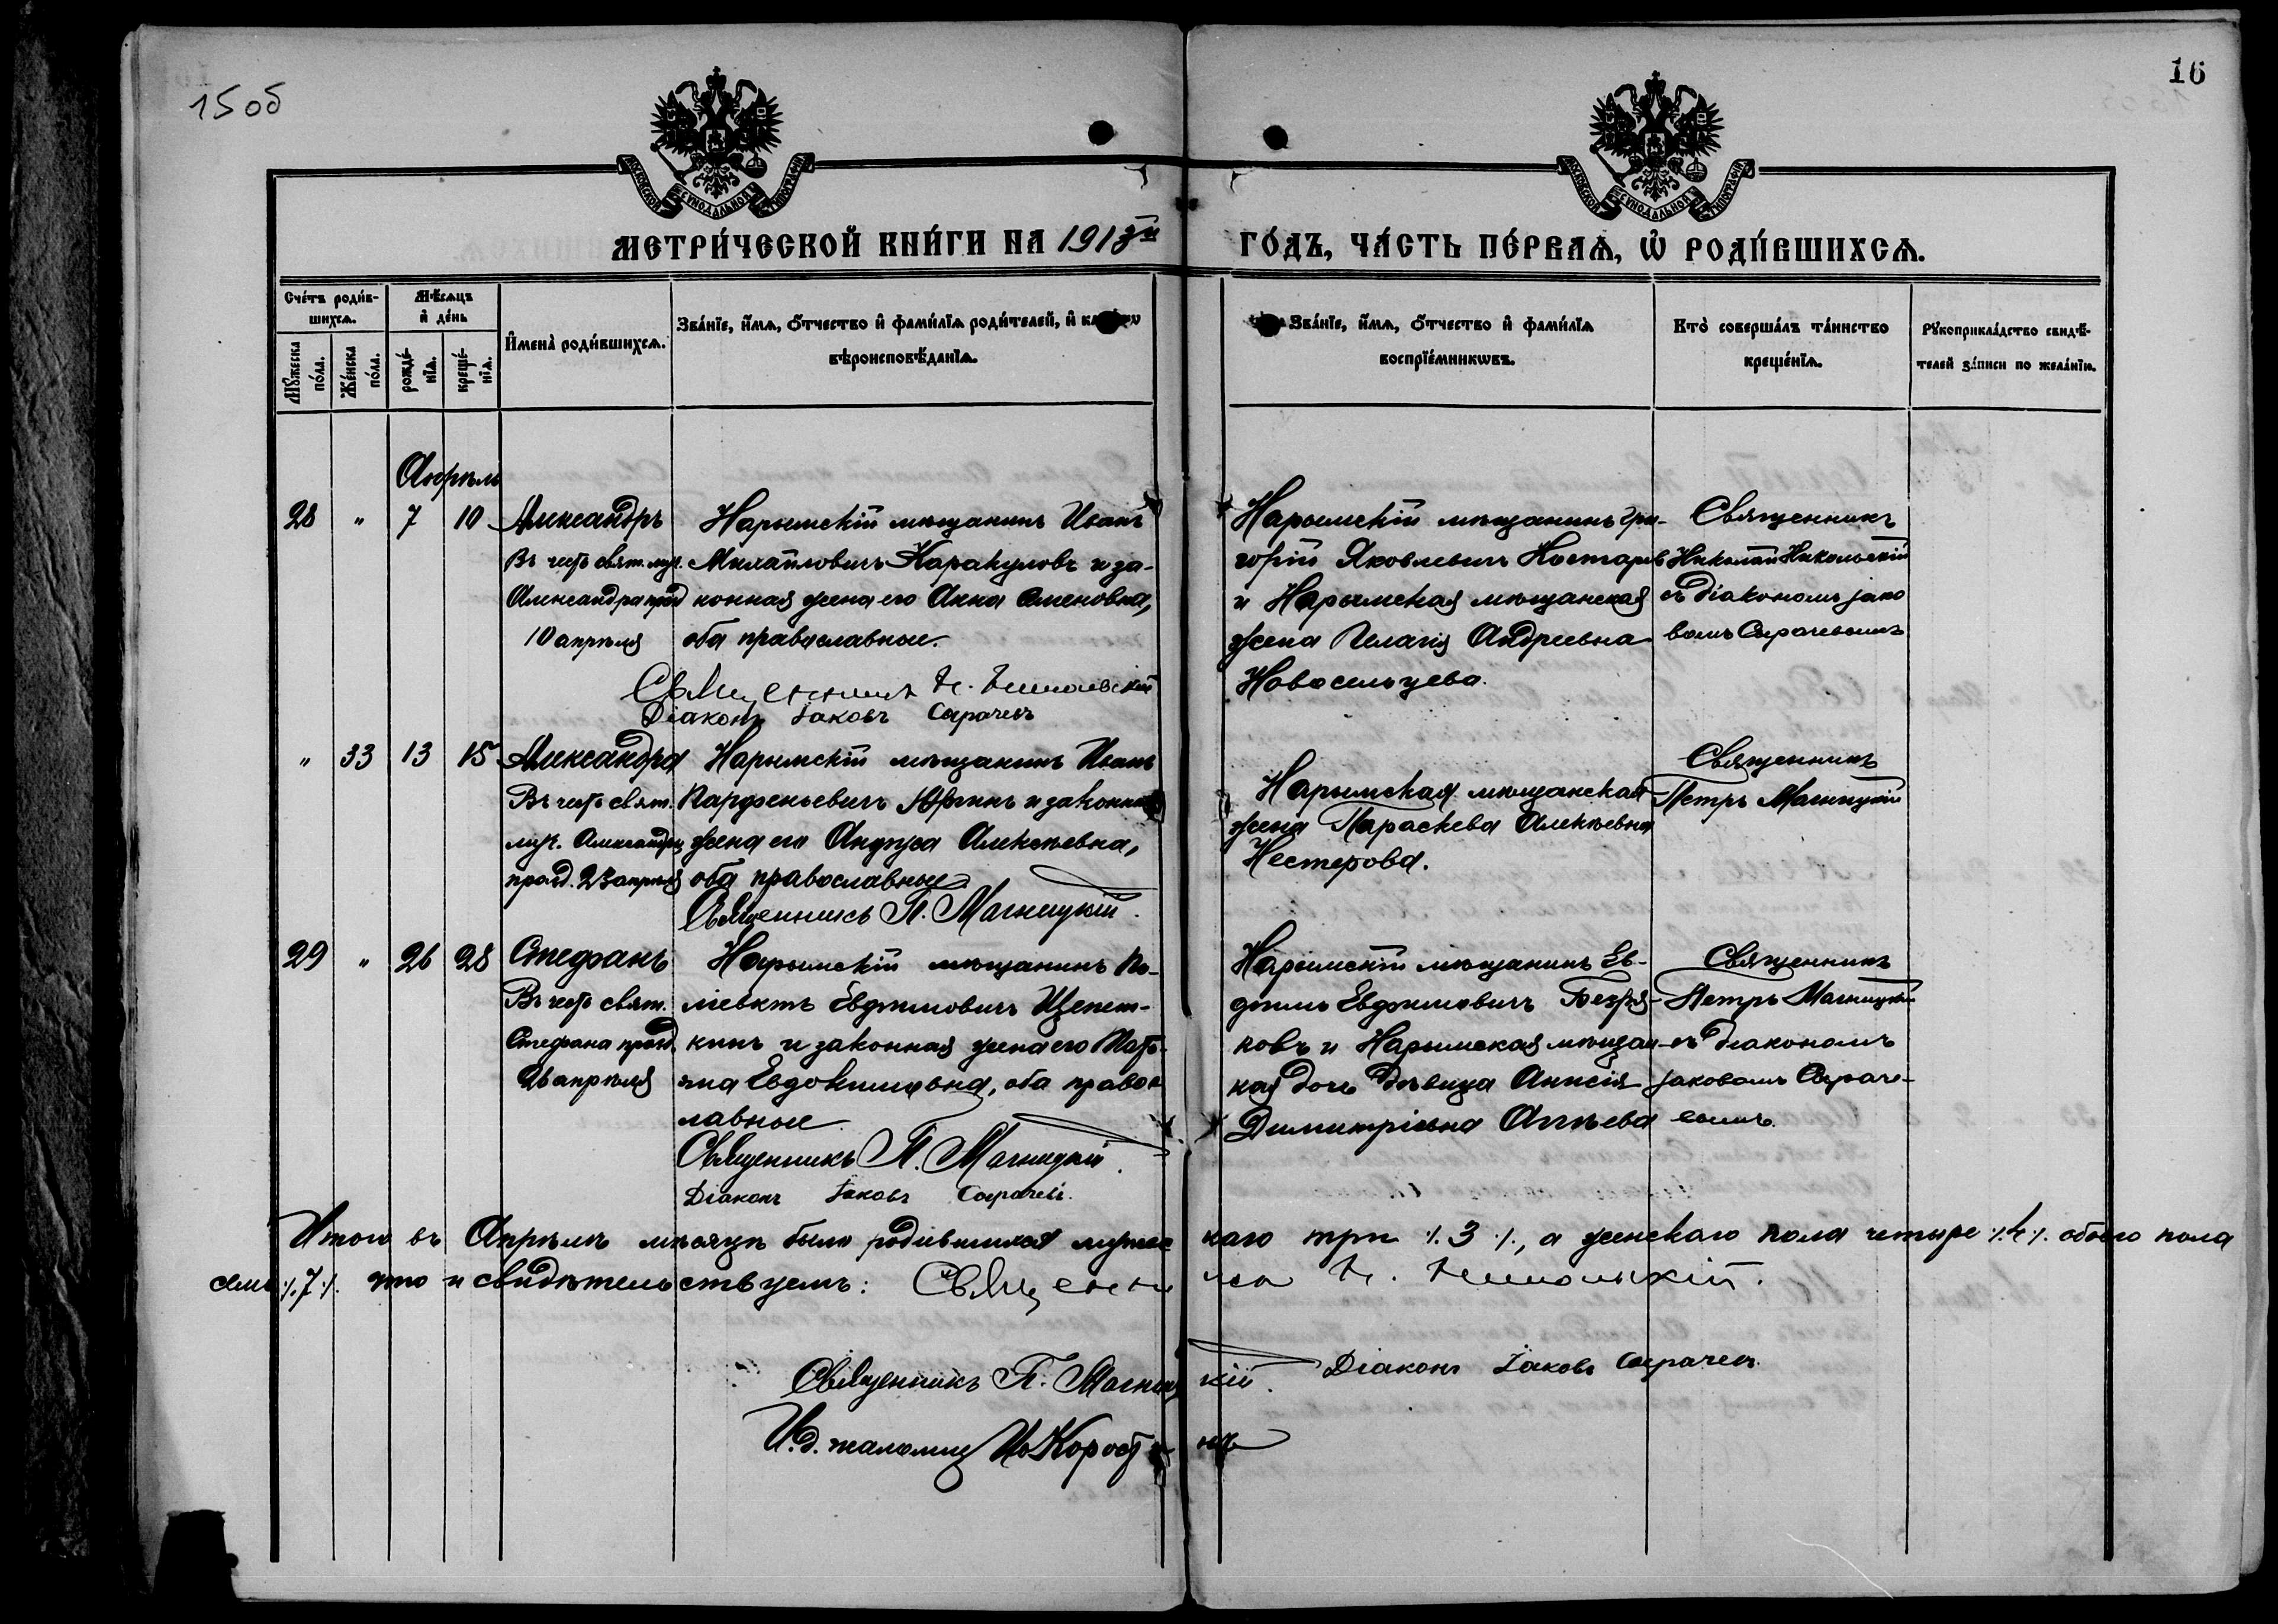 15об
16
МОСКОВСКОЙ СѴНОДАЛЬНОЙ ТИПОГРАФІИ
МОСКОВСКОЙ СѴНОДАЛЬНОЙ ТИПОГРАФІИ
МЕТРИ́ЧЕСКОЙ КНИ́ГИ НА 1913й
ГО́ДЪ, ЧА́СТЬ ПЕ́РВАѦ, Ѡ҆ РОДИ́ВШИХСѦ.
Сче́тъ роди́в-
шихсѧ.
Мꙋ́жеска
по́ла.
Же́нска
по́ла.
Мѣ́сѧцъ
и҆ де́нь
рожде́-
нїѧ.
креще́-
нїѧ.
И҆мена̀ роди́вшихсѧ.
Зва́нїе, и҆́мѧ, ѻ҆́тчество и҆ фами́лїѧ роди́телей, и҆
вѣроисповѣ́данїѧ.
Зва́нїе, и҆́мѧ, ѻ҆́тчество и҆ фами́лїѧ
воспрїе́мникѡвъ.
Кто̀ соверша́лъ та́инство
креще́нїѧ.
Рꙋкоприкла́дство свидѣ́-
телей за́писи по жела́нїю.
Апрѣль
28 " 7 10
Александръ
Въ честь свят. муч.
Александра празд
10 апрѣля
Нарымскій мѣщанинъ Иванъ
Михайловичъ Каракуловъ и за-
конная жена его Анна Семеновна,
оба православные.
Священникъ Н. Никольскій
Діаконъ Іаковъ Сырачевъ
Нарымскій мѣщанинъ Гри-
горій Яковлевичъ Костарев
и Нарымская мѣщанская
жена Пелагія Андреевна
Новосельцева.
Священникъ
Николай Никольскій
съ діакономъ Іако
вомъ Сырачевымъ
" 33 13 15
Александра
Въ честь свят.
муч. Александры
празд. 23 апрѣля
Нарымскій мѣщанинъ Иванъ
Парфеньевичъ и законная
жена его Анфуса Алексѣевна,
оба православные
Священникъ П. Магницкій.
Нарымская мѣщанская
жена Параскева Алексѣевна
Нестерова.
Священникъ
Петръ Магницкій
29 " 26 28
Стефанъ
Въ честь свят.
Стефана празд.
26 апрѣля
Нарымскій мѣщанинъ По-
ліевктъ Евфимовичъ Щепет-
кинъ и законная жена его Тать-
яна Евдокимовна, оба правос
лавные
Священникъ П. Магницкій.
Діаконъ Іаковъ Сырачевъ.
Нарымскій мѣщанинъ Ев-
фимъ Евфимовичъ Безря-
ковъ и Нарымская мѣщан-
кая дочь дѣвица Анисія
Димитріевна
Священникъ
Петръ Магницкій
съ діакономъ
Іаковомъ Сыраче-
вымъ.
Итого въ Апрѣлѣ мѣсяцѣ было родившихся мужес каго три ⁒3⁒, а женскаго пола четыре ⁒4⁒ обоего пола
семь ⁒7⁒ что и свидѣтельствуемъ: Священникъ Н. Никольскій.
Священникъ П. Магницкій. Діаконъ Іаковъ Сырачевъ.
И.д. псаломщ